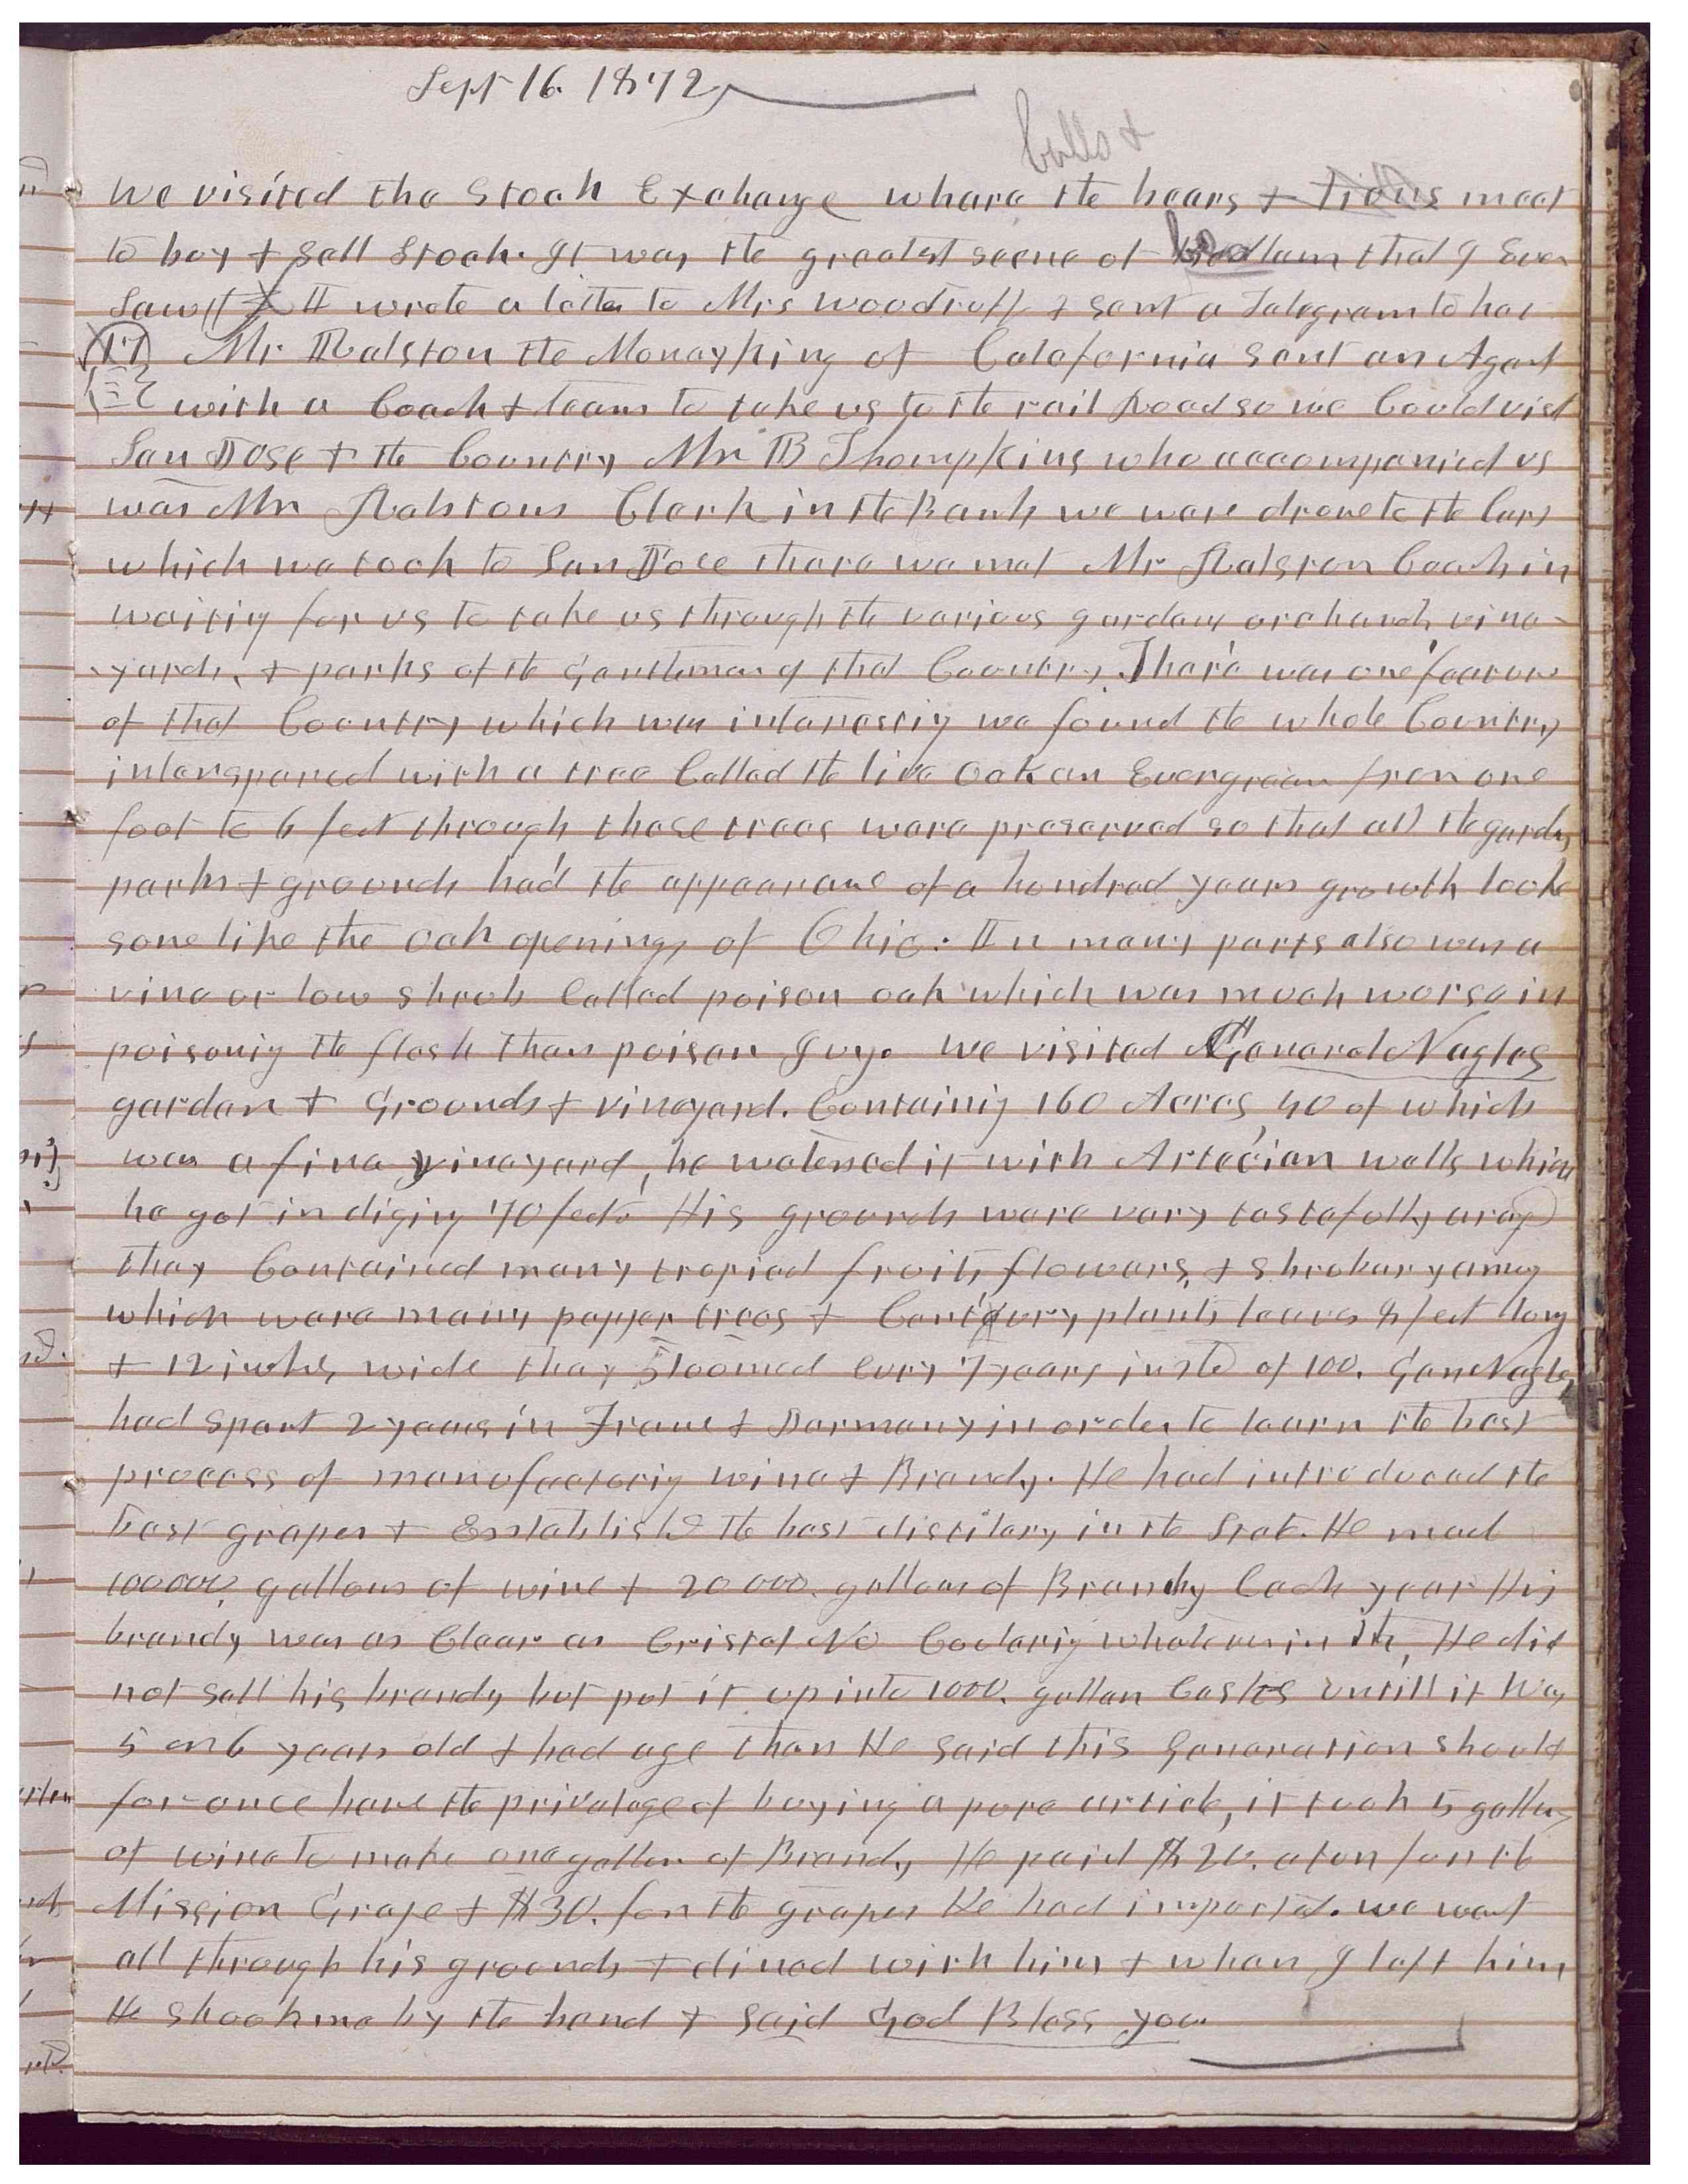 Sept 16. 1872
bulls &
we visited the Stock Exchange whare the bears & tions meet
to buy & sell Stock. It was the greatest scene of bedlam that I Ever
Saw // I wrote a letter to Mrs Woodruff & sent a Telegram to her
17 Mr Ralston the Money King of Calefornia Sent an Agent
with a Coach & team to take us to the rail Road so we Could visit
San Jose & the Country Mr B Thompkins who accompanied us
was Mr Ralstons Clerk in the Bank we ware drove to the Cars
which we took to San Jose thare we met Mr Ralston Coach in
waitig for us to take us through the various gardens orchards vine-
-yards, & parks of the Gentleman of that Country. Thare was one feature
of that Country which was interestig we found the whole Country
interspersed with a tree Called the live Oak an Evergreen from one
foot to 6 feet through those trees ware preserved so that all the gardens
parks & grounds had the appearance of a hundred years growth look
some like the oak openings of Ohio. In many parts also was a
vine or low shrub Called poison oak which was much worse in
poisonig the flesh than poison Ivy. We visited General Nagles
garden & Grounds & vineyard. Containig 160 Acres, 40 of which
was a fine vineyard, he watered it with Artecian wells which
he got in digig 70 feet. His grounds ware very tastefully
they Contained many tropical fruits, flowers, & Shrubery among
which ware many pepper trees & Century plants leaves 8 feet long
& 12 inches wide they bloomed Evry 7 years insted of 100. Gen Nagles
had Spent 2 years in France & Germany in order to learn the best
process of manufactorig wine & Brandy. He had introduced the
best grapes & Esstablished the best distilery in the State. He made
100000, gallons of wine & 20000. gallons of Brandy Each year His
brandy was as Clear as Cristol No Coclorig whatever in it, He did
not sell his brandy but put it up into 1000. gallon Casks untill it was
5 or 6 years old & had age then He said this Generation should
for once have the privelege of buying a pure article, it took 5 gallons
of wine to make one gallon of Brandy He paid $20. a ton for the
Mission Grape & $30. for the grapes He had imported. we went
all through his grounds & dined with him & when I left him
He shook me by the hand & said God Bless you